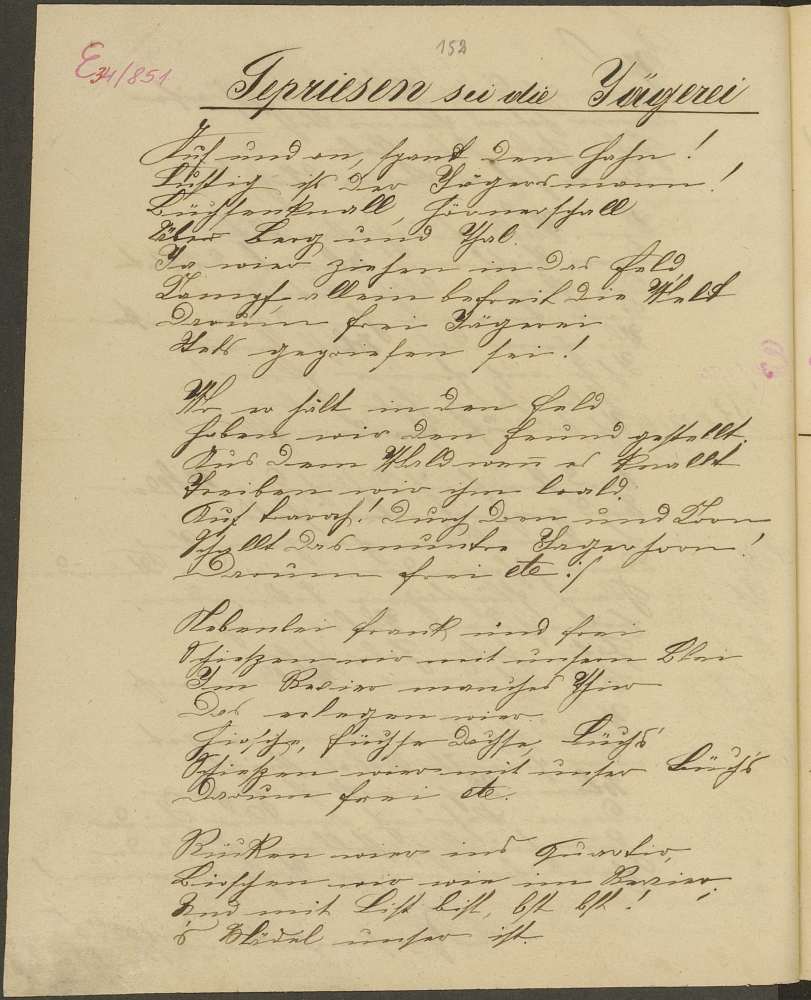 152
E 34/851
Gepriesen sei die Jägerei
Auf und an, spant den Hahn!
Lustig ist der Jägersmann!
Büchsenknall, Hörnerschall
Über Berg und Thal.
Ja wier ziehen in das Feld
Kampf allein befreit die Welt
Darum frei Jägerei
Stets gepriesen sei!
Wo er hält in den Feld
Haben wir den Feund gestellt.
Aus dem Wald wenn es knallt
Treiben wir ihm bald.
Auf trarah! Durch Dorn und Korn
Schallt das muntre Jägerhorn!
Darum frei etc :/
Nebenbei frank und frei
Schießen wir mit unsern Blei
Im Revier manches Thier
Das erlegen wier.
Hirsche, Füchse Dachse, Lüchs'
Schießen wier mit unser Büchs
Darum frei etc.
Rücken wier ins Quartir,
Birschen wir wie im Revier
Und mit List bist, bst bst!
's Mädel unser ist.